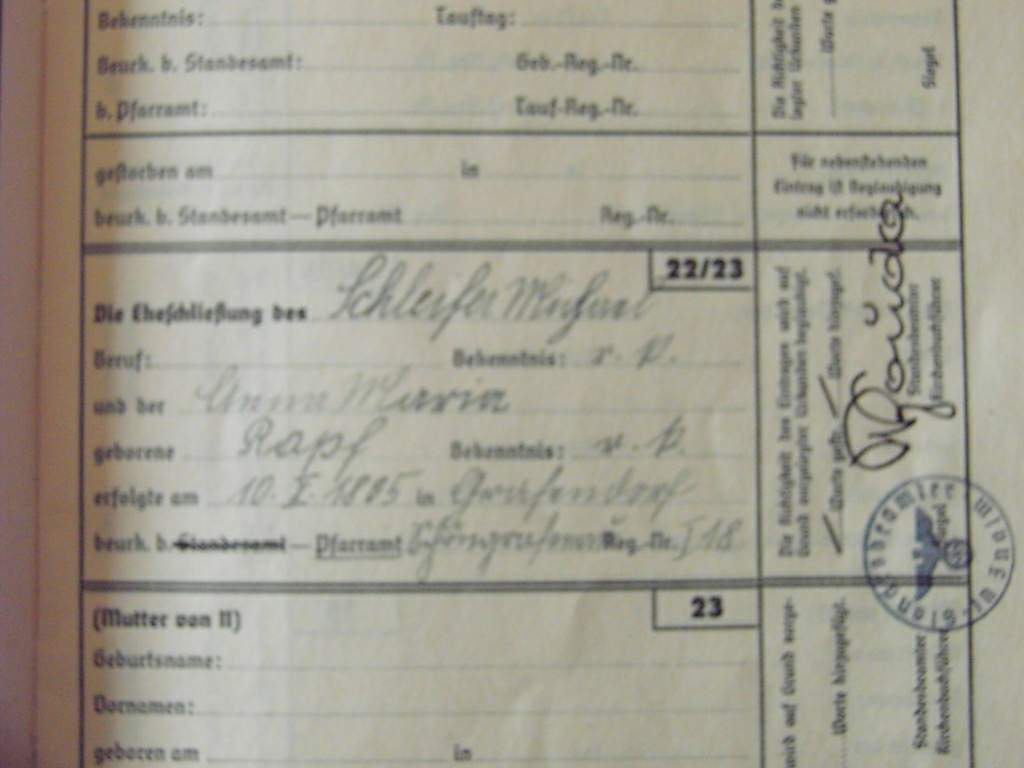 Bekenntnis: Tauftag:
Beurk. b. Standesamt: Geb.-Reg.-Nr.
b. Pfarramt: Tauf-Reg.-Nr.
gestorben am in
beurk. b. Standesamt — Pfarramt Reg.-Nr.
Für nebenstehenden
Eintrag ist Beglaubigung
nicht erforderlich.
22/23
Die Eheschließung des Schleifer Michael
Beruf: Bekenntnis: r. k.
und der Anna Maria
geborene Rapf Bekenntnis: r. k.
erfolgte am 10. I. 1805 in Grafendorf
beurk. b. Standesamt — Pfarramt Reg.-Nr. I 18
(Mutter von 11)
23
Geburtsname:
Vornamen:
geboren am in
Siegel
Die Richtigkeit des Eintrages wird auf
Grund vorgelegter Urkunden beglaubigt.
Worte gestr. Worte hinzugef.
Standesbeamter
Kirchenbuchführer
Siegel
wird auf Grund vorge-
Worte hinzugefügt.
Standesbeamter
Kirchenbuchführer